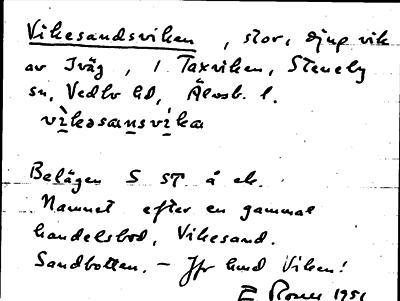 Vikesandsviken, stor, djup vik
av Iväg, i Taxviken, Steneby
sn, Vedbo hd, Älvsb. l.
vìkəsansvíka
Belägen S ST å ek.
Namnet efter en gammal
handelsbod, Vikesand.
Sandbotten. - Jfr hmd Viken!
E 1951